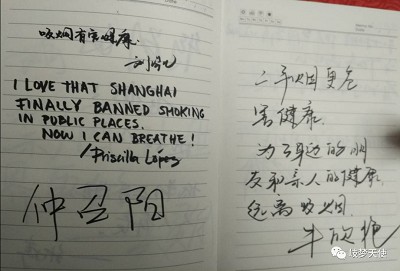 吸烟有害健康.
I LOVE THAT SHANGHAI
FINALLY BANNED SMOKING
IN PUBLIC PLACES.
NOW I CAN BREATHE!
/Priscilla López
仲召阳
二手烟更危
害健康.
为了身边的朋
友和亲人的健康
远离吸烟.
牛欣
筑梦天使